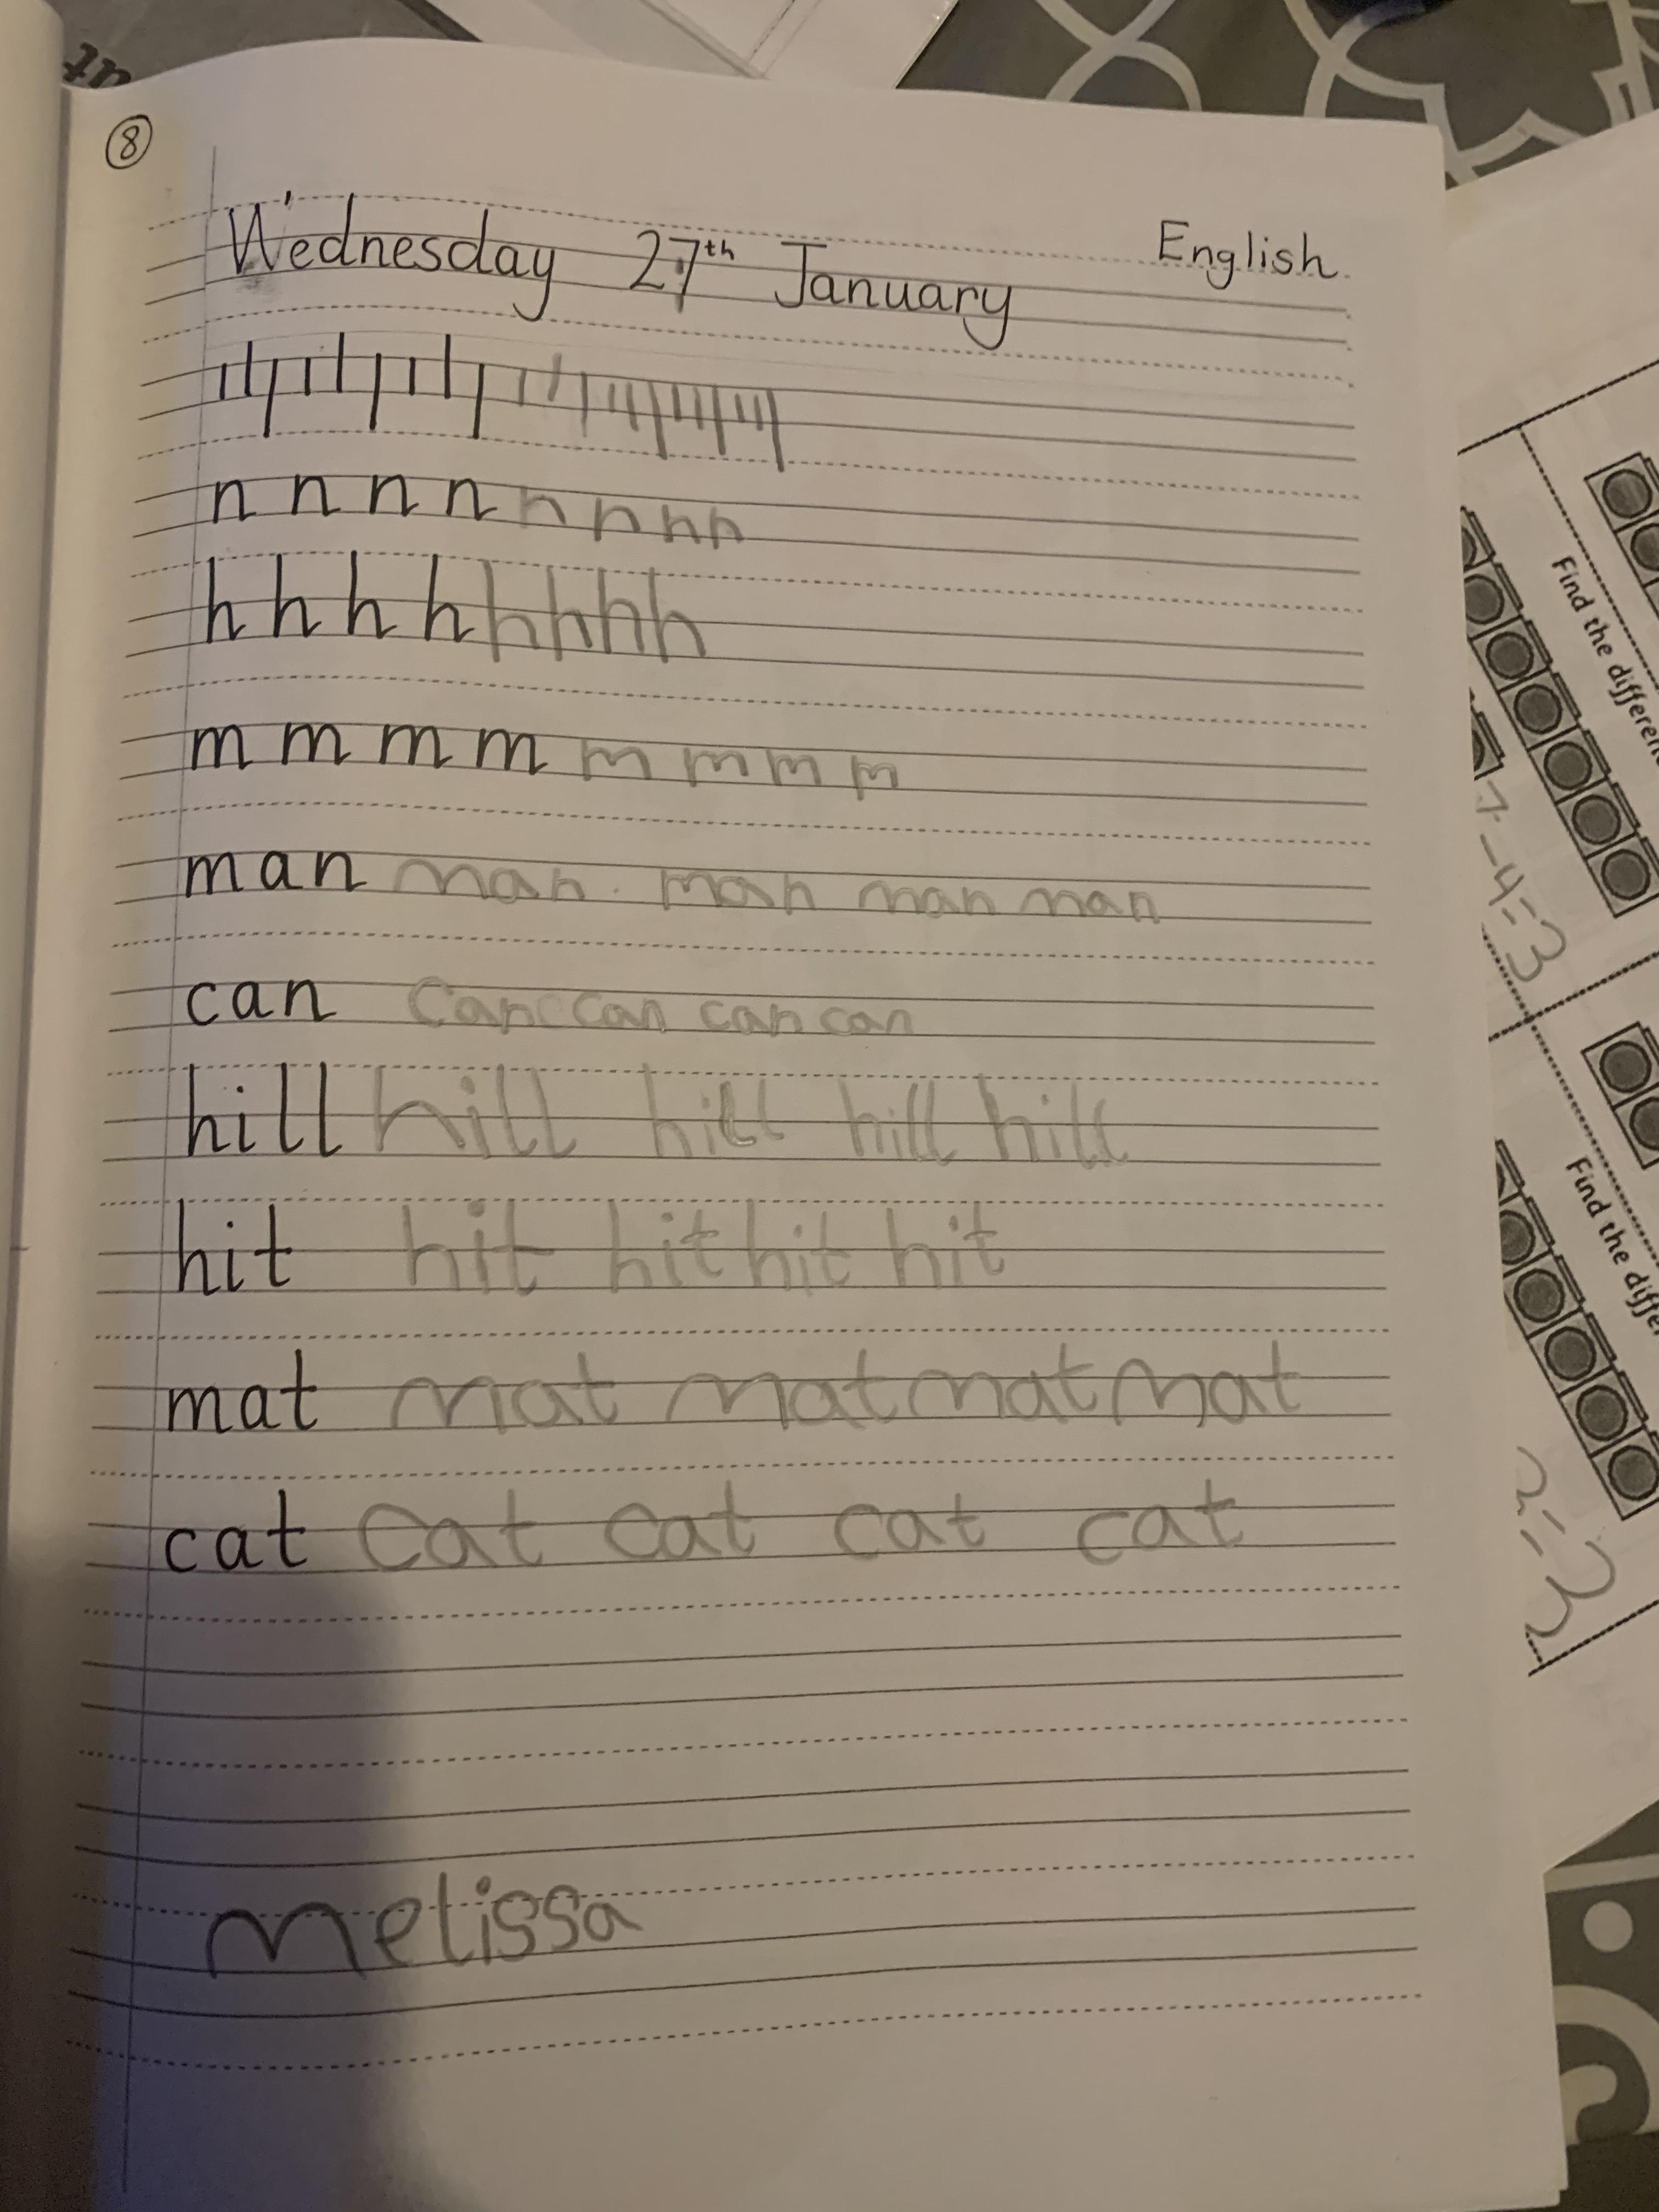 8
Wednesday 27th January English
n n n n n n n n
h h h h h h h h
m m m m m m m m
man man . man man man
can can c can can can
hill hill hill hill hill
hit hit hit hit hit
mat mat mat mat mat
cat cat cat cat cat
melissa
Find the differen
7-4=3
Find the diffe